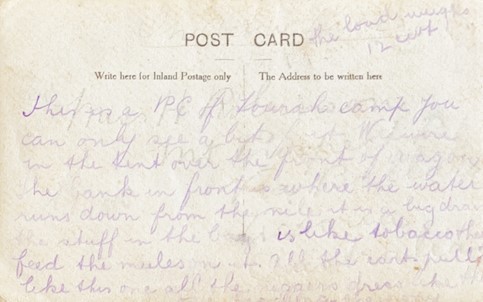 the load weighs
12 cwt
POST CARD
Write here for Inland Postage only
The Address to be written here
this is a P.C. of Tourah camp you
can only see a bit of it We were
in the tent over the front of wagon
the bank in front is where the water
runs down from the nile it is a big drain
the stuff in the bags is like tobacco they
feed the mules on it. All the carts pulli
like this one all the niggers dress the